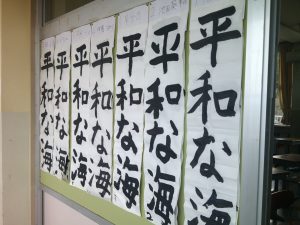 平和な海
平和な海
平和な海
平和な海
平和な海
平和な海
平和な海